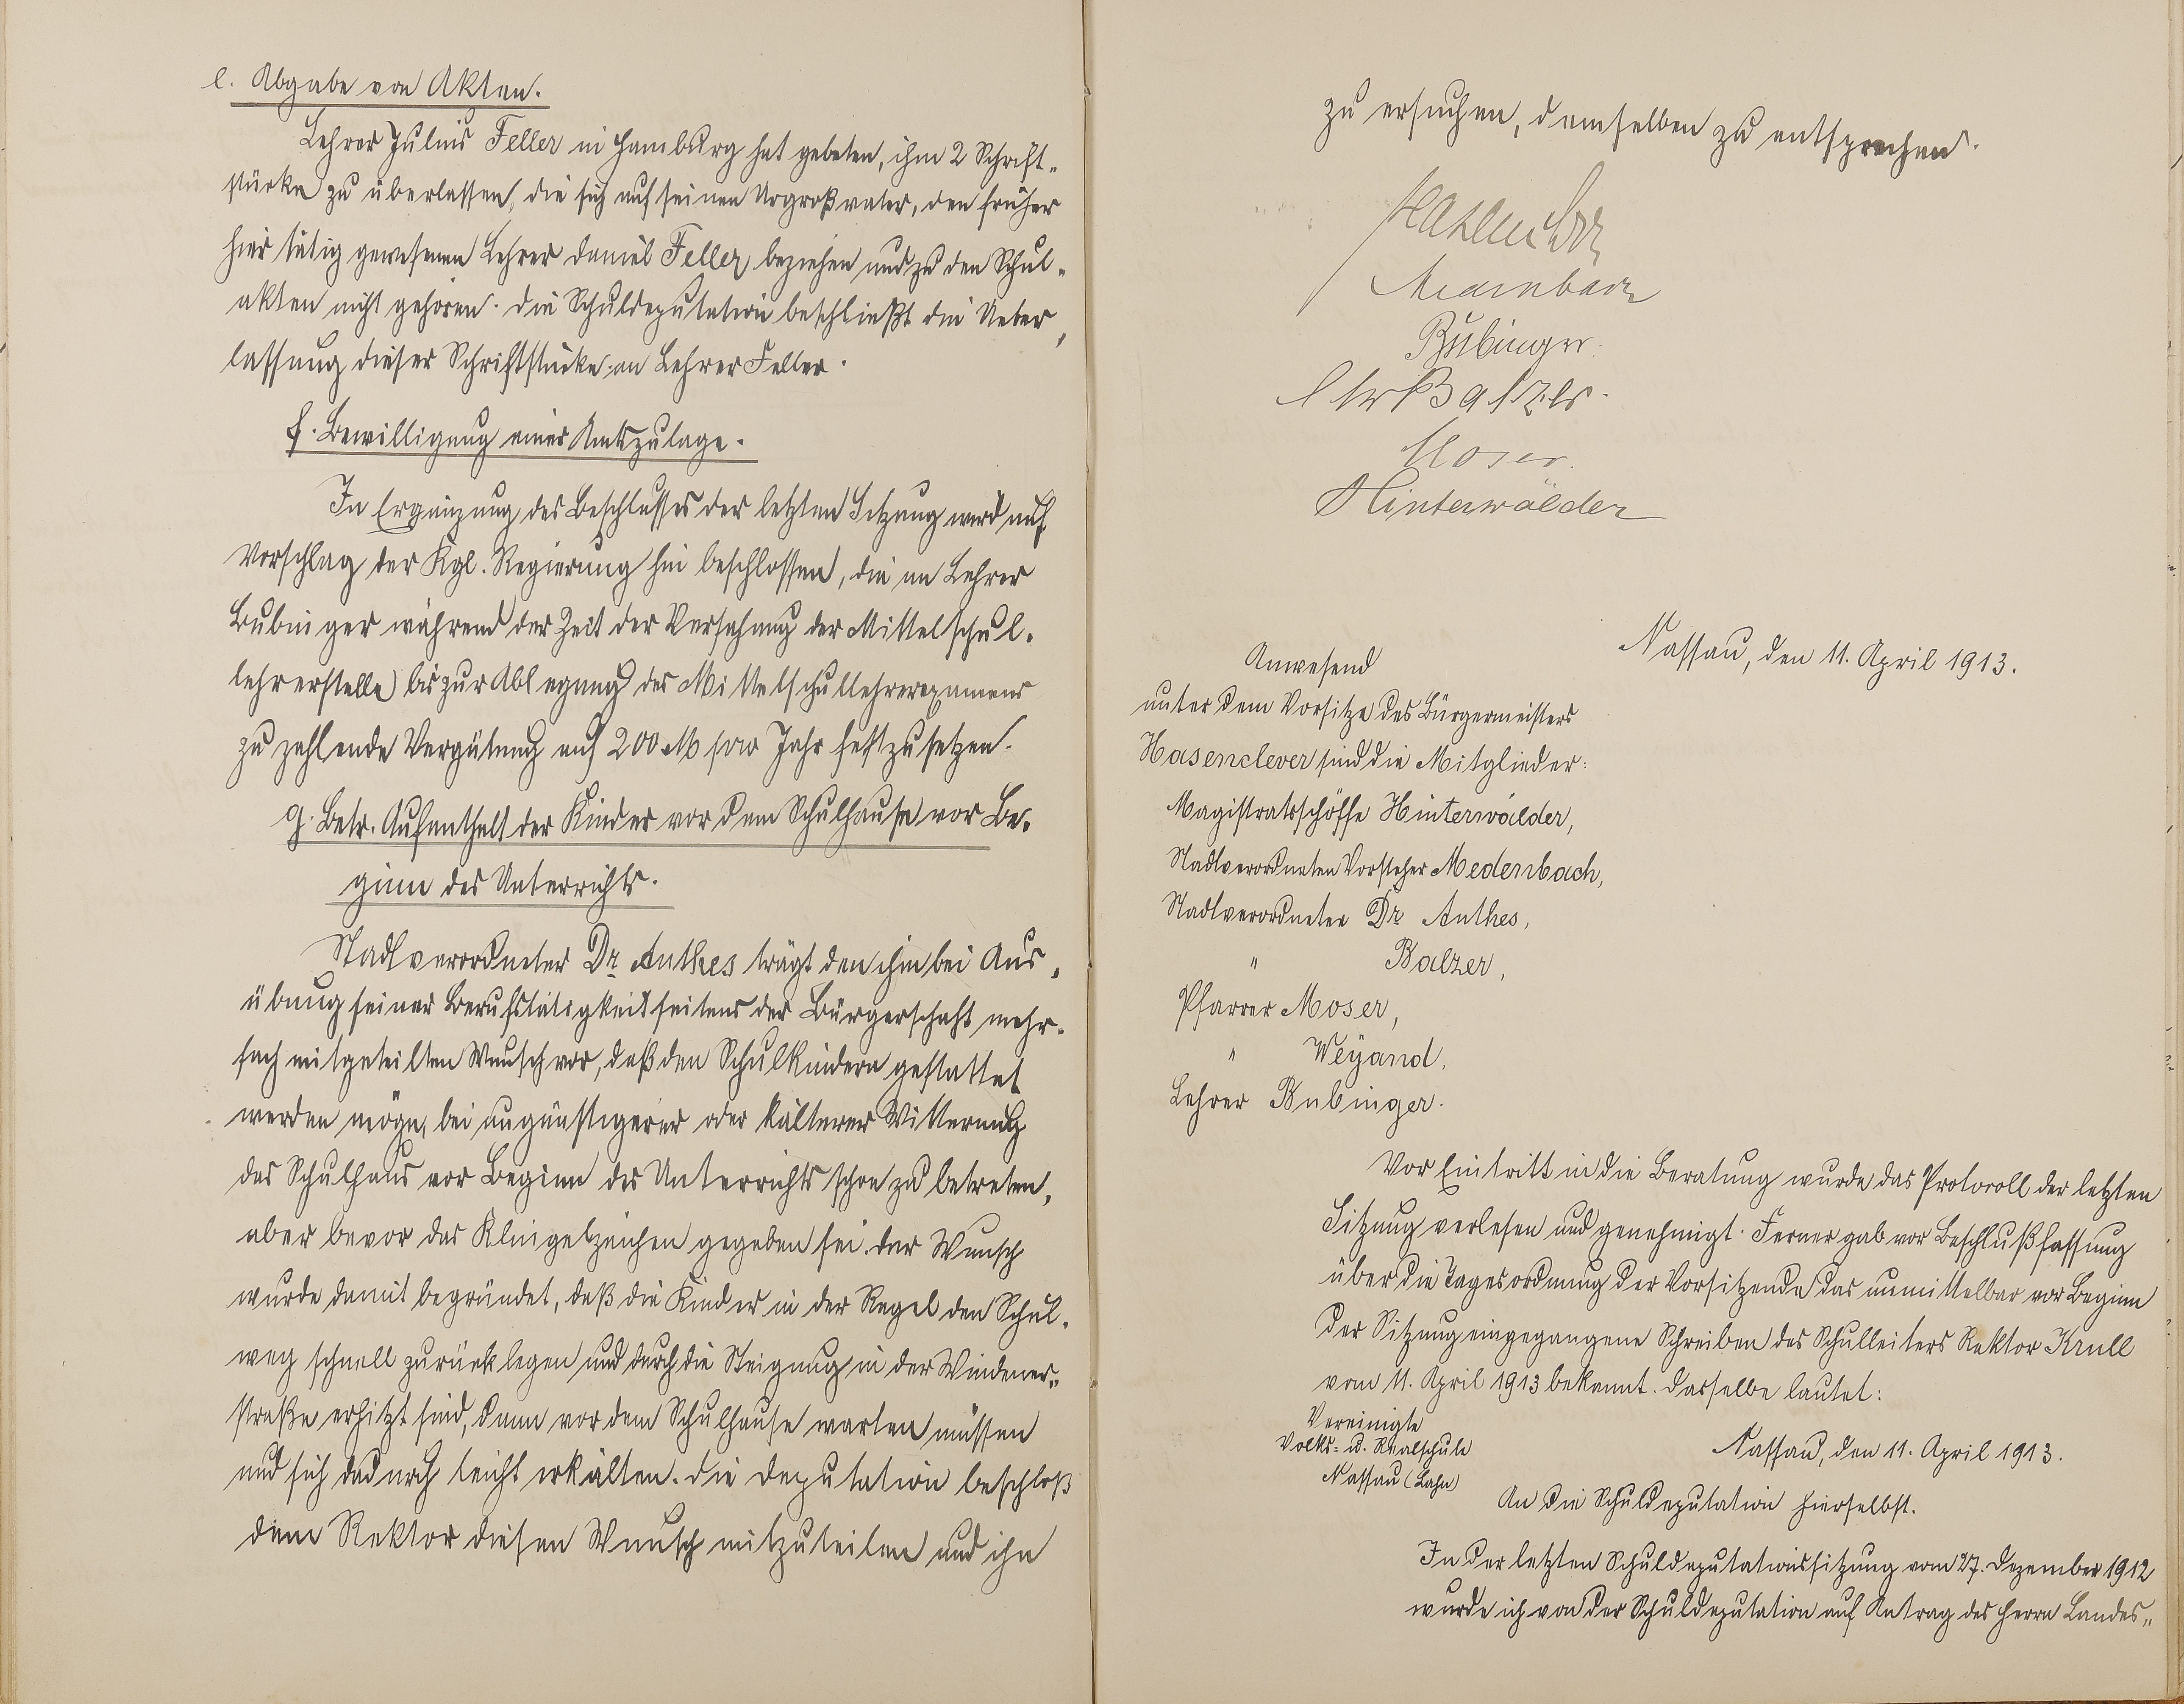 e. Abgabe von Akten.
Lehrer Julius Feller in Hamburg hat gebeten, ihm 2 Schrift-
stücke zu überlassen, die sich auf seinen Urgroßvater, den früher
hier tätig gewesenen Lehrer Daniel Feller, beziehen und zu den Schul-
akten nicht gehören. Die Schuldeputation beschließt die Ueber-
lassung dieser Schriftstücke an Lehrer Feller.
f. Bewilligung einer Amtszulage.
In Ergänzung des Beschlusses der letzten Sitzung wird auf
Vorschlag der Kgl. Regierung hin beschlossen, die an Lehrer
Bubinger während der Zeit der Versehung der Mittelschul-
lehrerstelle bis zur Ablegung des Mittelschullehrerexamens
zu zahlende Vergütung auf 200 M pro Jahr festzusetzen.
g. Betr. Aufenthalt der Kinder vor dem Schulhause vor Be-
ginn des Unterrichts.
Stadtverordneter Dr. Anthes trägt den ihm bei Aus-
übung seiner Berufstätigkeit seitens der Bürgerschaft mehr-
fach mitgeteilten Wunsch vor, daß den Schulkindern gestattet
werden möge, bei ungünstigerer oder kälterer Witterung
das Schulhaus vor Beginn des Unterrichts schon zu betreten,
aber bevor das Klingelzeichen gegeben sei. Der Wunsch
wurde damit begründet, daß die Kinder in der Regel den Schul-
weg schnell zurücklegen und durch die Steigung in der Windener-
straße erhitzt sind, dann vor dem Schulhause warten müssen
und sich dadurch leicht erkälten. Die Deputation beschloß
dem Rektor diesen Wunsch mitzuteilen und ihn
zu ersuchen, demselben zu entsprechen.
Hasenclever
Medenbach
Bubinger.
Chr Balzer.
Moser.
Hinterwälder
Nassau, den 11. April 1913.
Anwesend
unter dem Vorsitze des Bürgermeisters
Hasenclever sind die Mitglieder:
Magistratsschöffe Hinterwälder,
Stadtverordneten Vorsteher Medenbach,
Stadtverordneter Dr Anthes,
" Balzer,
Pfarrer Moser,
" Weyand,
Lehrer Bubinger.
Vor Eintritt in die Beratung wurde das Protocoll der letzten
Sitzung verlesen und genehmigt. Ferner gab vor Beschlußfassung
über die Tagesordnung der Vorsitzende das unmittelbar vor Beginn
der Sitzung eingegangene Schreiben des Schulleiters Rektor Krull
vom 11. April 1913 bekannt. Dasselbe lautet:
Vereinigte
Volks- u. Realschule
Nassau (Lahn)
Nassau, den 11. April 1913.
An die Schuldeputation hierselbst.
In der letzten Schuldeputationssitzung vom 27. Dezember 1912
wurde ich von der Schuldeputation auf Antrag des Herrn Landes-